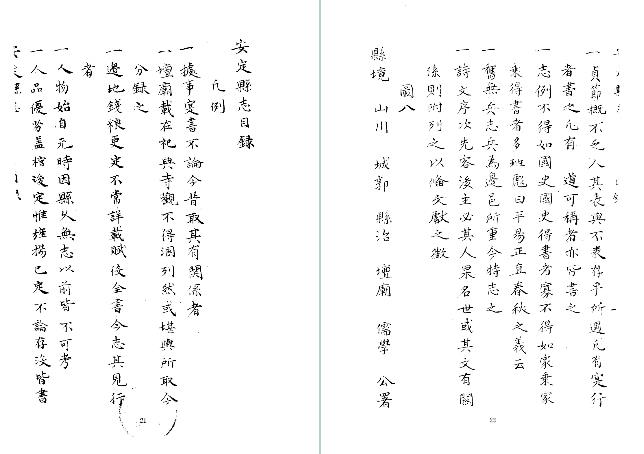 安定縣志目錄
凡例
一據事定書不論今昔取其有関係者
一壇廟載在祀典寺觀不得溷列然或堪輿所取今
分録之
一邊地錢粮更定不常詳載賦役全書今志其見行
者
一人物始自元時因縣久無志以前皆不可考
一人品優劣盖棺後定惟
已定不論存没皆書
21
一貞節概不乏人其表與不表存乎所遇凡有實行
者書之凡有
道可稱者亦皆書之
一志例不得如國史國史得書方寡不得如家乘家
乘得書者多班彪曰平易正直春秋之義云
一舊無兵志兵為邊邑所重今特志之
一詩文序次先容後主必其人果名世或其文有關
係則附列之以備文獻之徵
圖八
縣境 山川 城郭 縣治 壇廟 儒學 公署
22